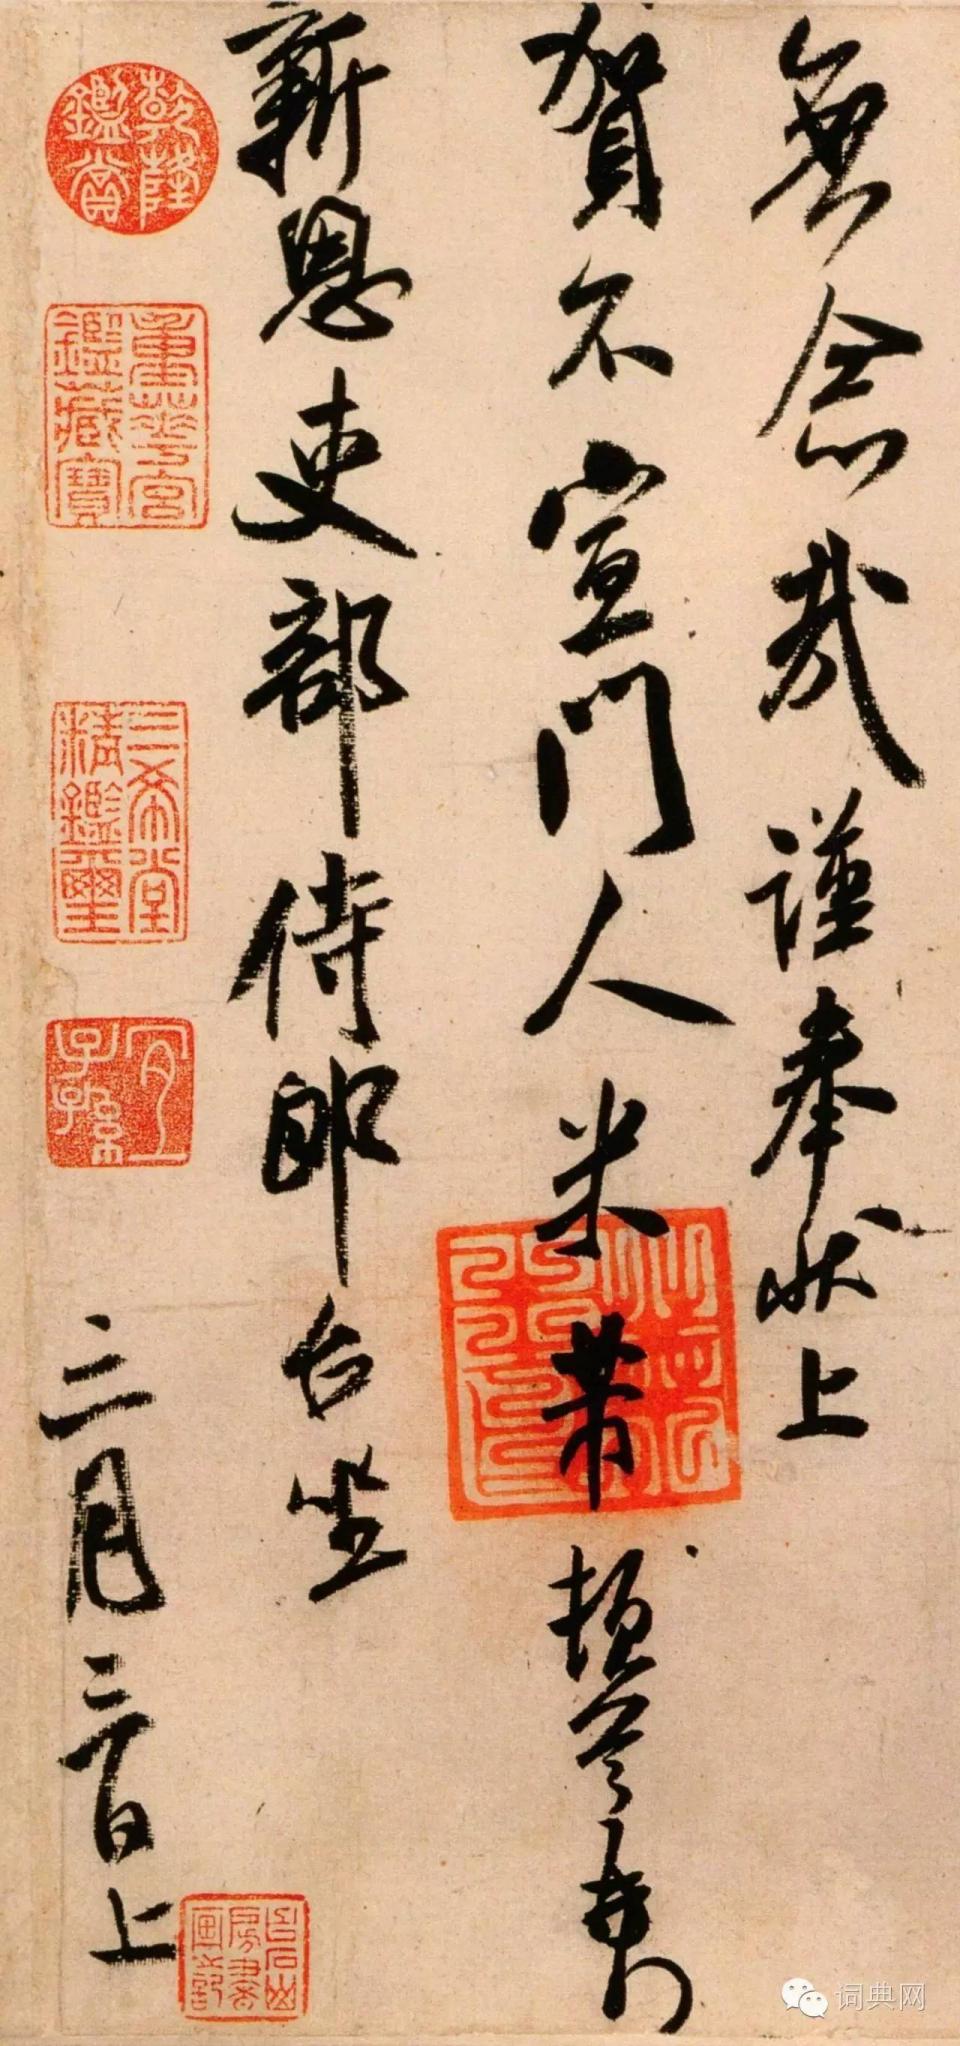 無念哉謹奉狀上
賀不宣門人米芾頓首再拜
新恩吏部侍郎台坐
三月三日上
乾隆鑑賞
重華宮鑑藏寶
三希堂精鑑璽
宜子孫
词典网